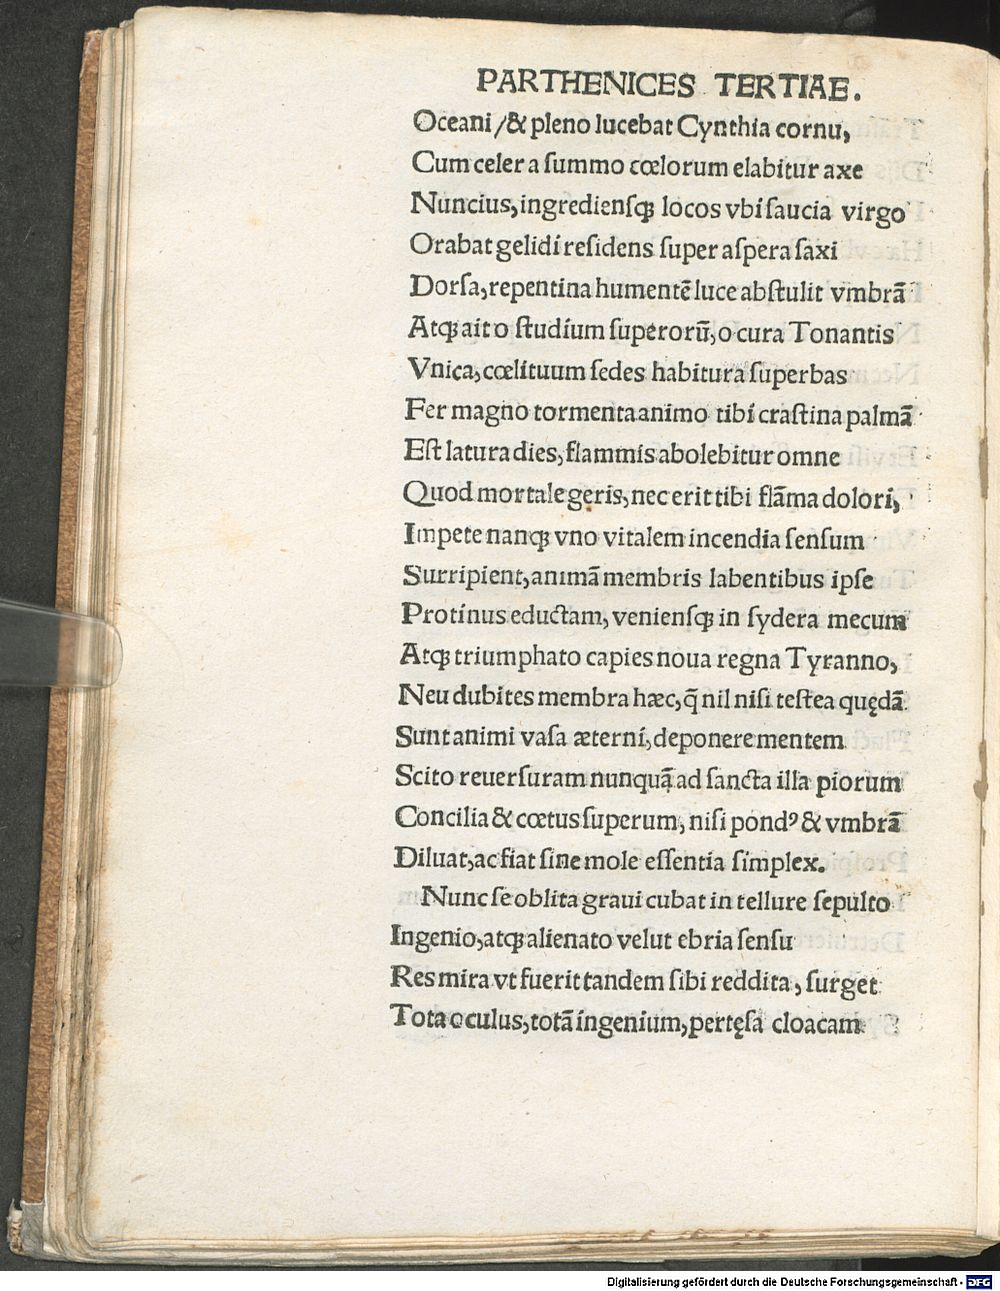 PARTHENICES TERTIAE.
Oceani/& pleno lucebat Cynthia cornu,
Cum celer a ſummo cœlorum elabitur axe
Nuncius, ingredienſqꝫ locos vbi ſaucia virgo
Orabat gelidi reſidens ſuper aſpera ſaxi
Dorſa, repentina humentē luce abſtulit vmbrā
Atqꝫ ait o ſtudium ſuperorū, o cura Tonantis
Vnica, cœlituum ſedes habitura ſuperbas
Fer magno tormenta animo tibi craſtina palmā
Eſt latura dies, flammis abolebitur omne
Quod mortale geris, nec erit tibi flāma dolori,
Impete nanqꝫ vno vitalem incendia ſenſum
Surripient, animā membris labentibus ipſe
Protinus eductam, venienſqꝫ in ſydera mecum
Atqꝫ triumphato capies noua regna Tyranno,
Neu dubites membra hæc, q̄ nil niſi teſtea quędā
Sunt animi vaſa æterni, deponere mentem
Scito reuerſuram nunquā ad ſancta illa piorum
Concilia & cœtus ſuperum, niſi pondꝰ & vmbrā
Diluat, ac fiat ſine mole eſſentia ſimplex.
Nunc ſe oblita graui cubat in tellure ſepulto
Ingenio, atqꝫ alienato velut ebria ſenſu
Res mira vt fuerit tandem ſibi reddita, ſurget
Tota oculus, totā ingenium, pertęſa cloacam
Digitalisierung gefördert durch die Deutsche Forschungsgemeinschaft - DFG